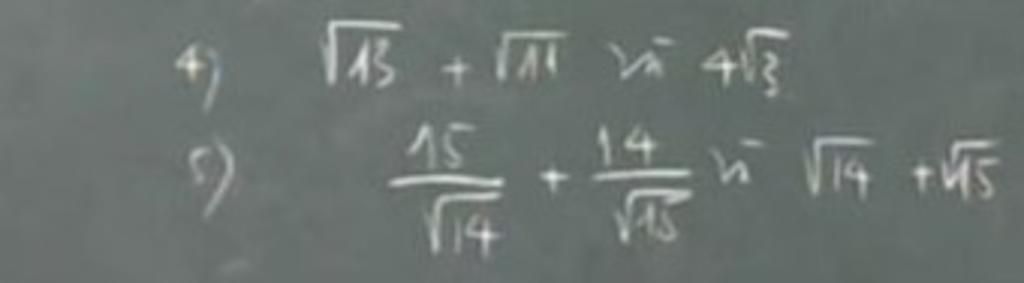 4) √13 + √11 và 4√3
5) 15/√14 + 14/√15 và √14 + √15